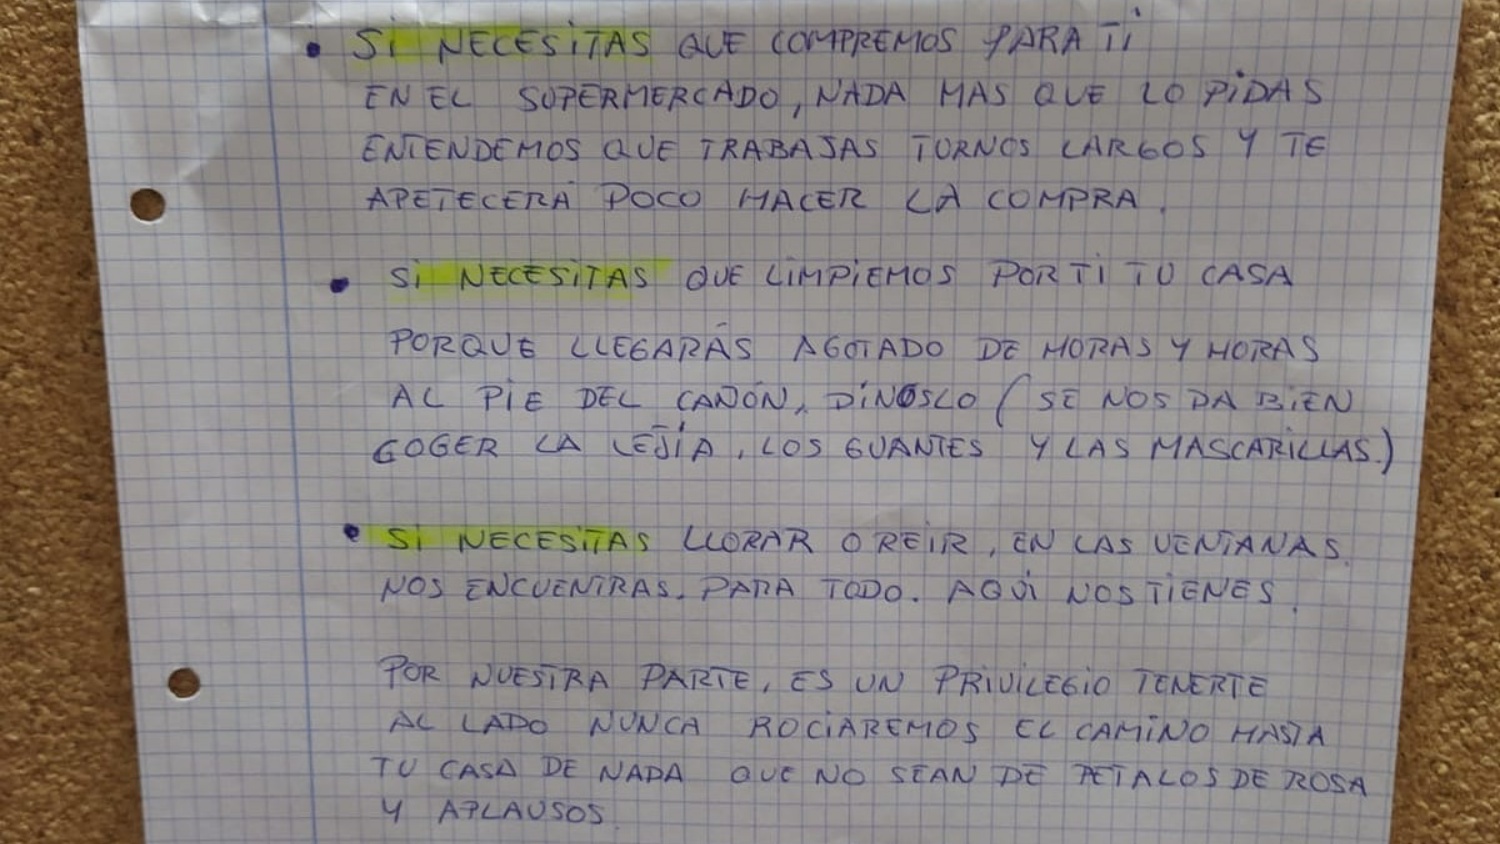 • SI NECESITAS QUE COMPREMOS PARA TI
EN EL SUPERMERCADO, NADA MAS QUE LO PIDAS
ENTENDEMOS QUE TRABAJAS TURNOS LARGOS Y TE
APETECERÁ POCO HACER LA COMPRA.
• SI NECESITAS QUE LIMPIEMOS POR TI TU CASA
PORQUE LLEGARÁS AGOTADO DE HORAS Y HORAS
AL PIE DEL CAÑÓN, DÍNOSLO (SE NOS DA BIEN
COGER LA LEJÍA, LOS GUANTES Y LAS MASCARILLAS.)
• SI NECESITAS LLORAR O REIR, EN LAS VENTANAS
NOS ENCUENTRAS. PARA TODO. AQUÍ NOS TIENES.
POR NUESTRA PARTE, ES UN PRIVILEGIO TENERTE
AL LADO NUNCA ROCIAREMOS EL CAMINO HASTA
TU CASA DE NADA QUE NO SEAN DE PETALOS DE ROSA
Y APLAUSOS.